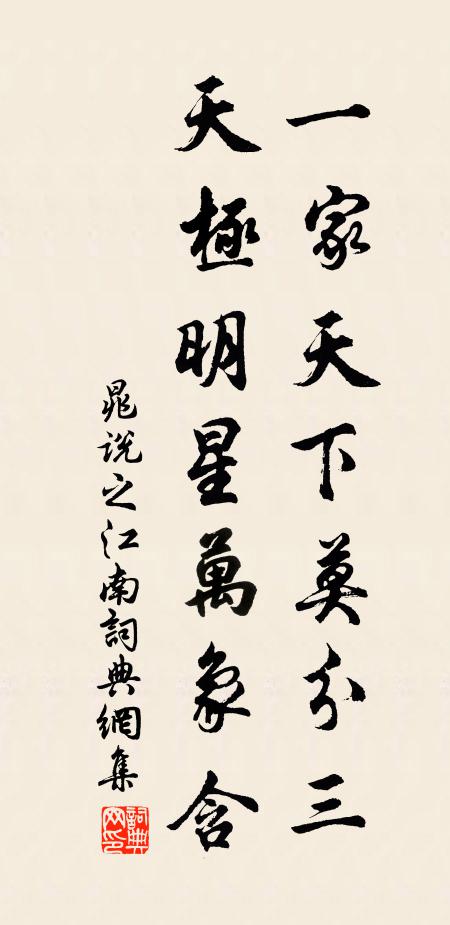 一家天下莫分三
天極明星萬象含
晁說之江南詞典網集
詞典
网印